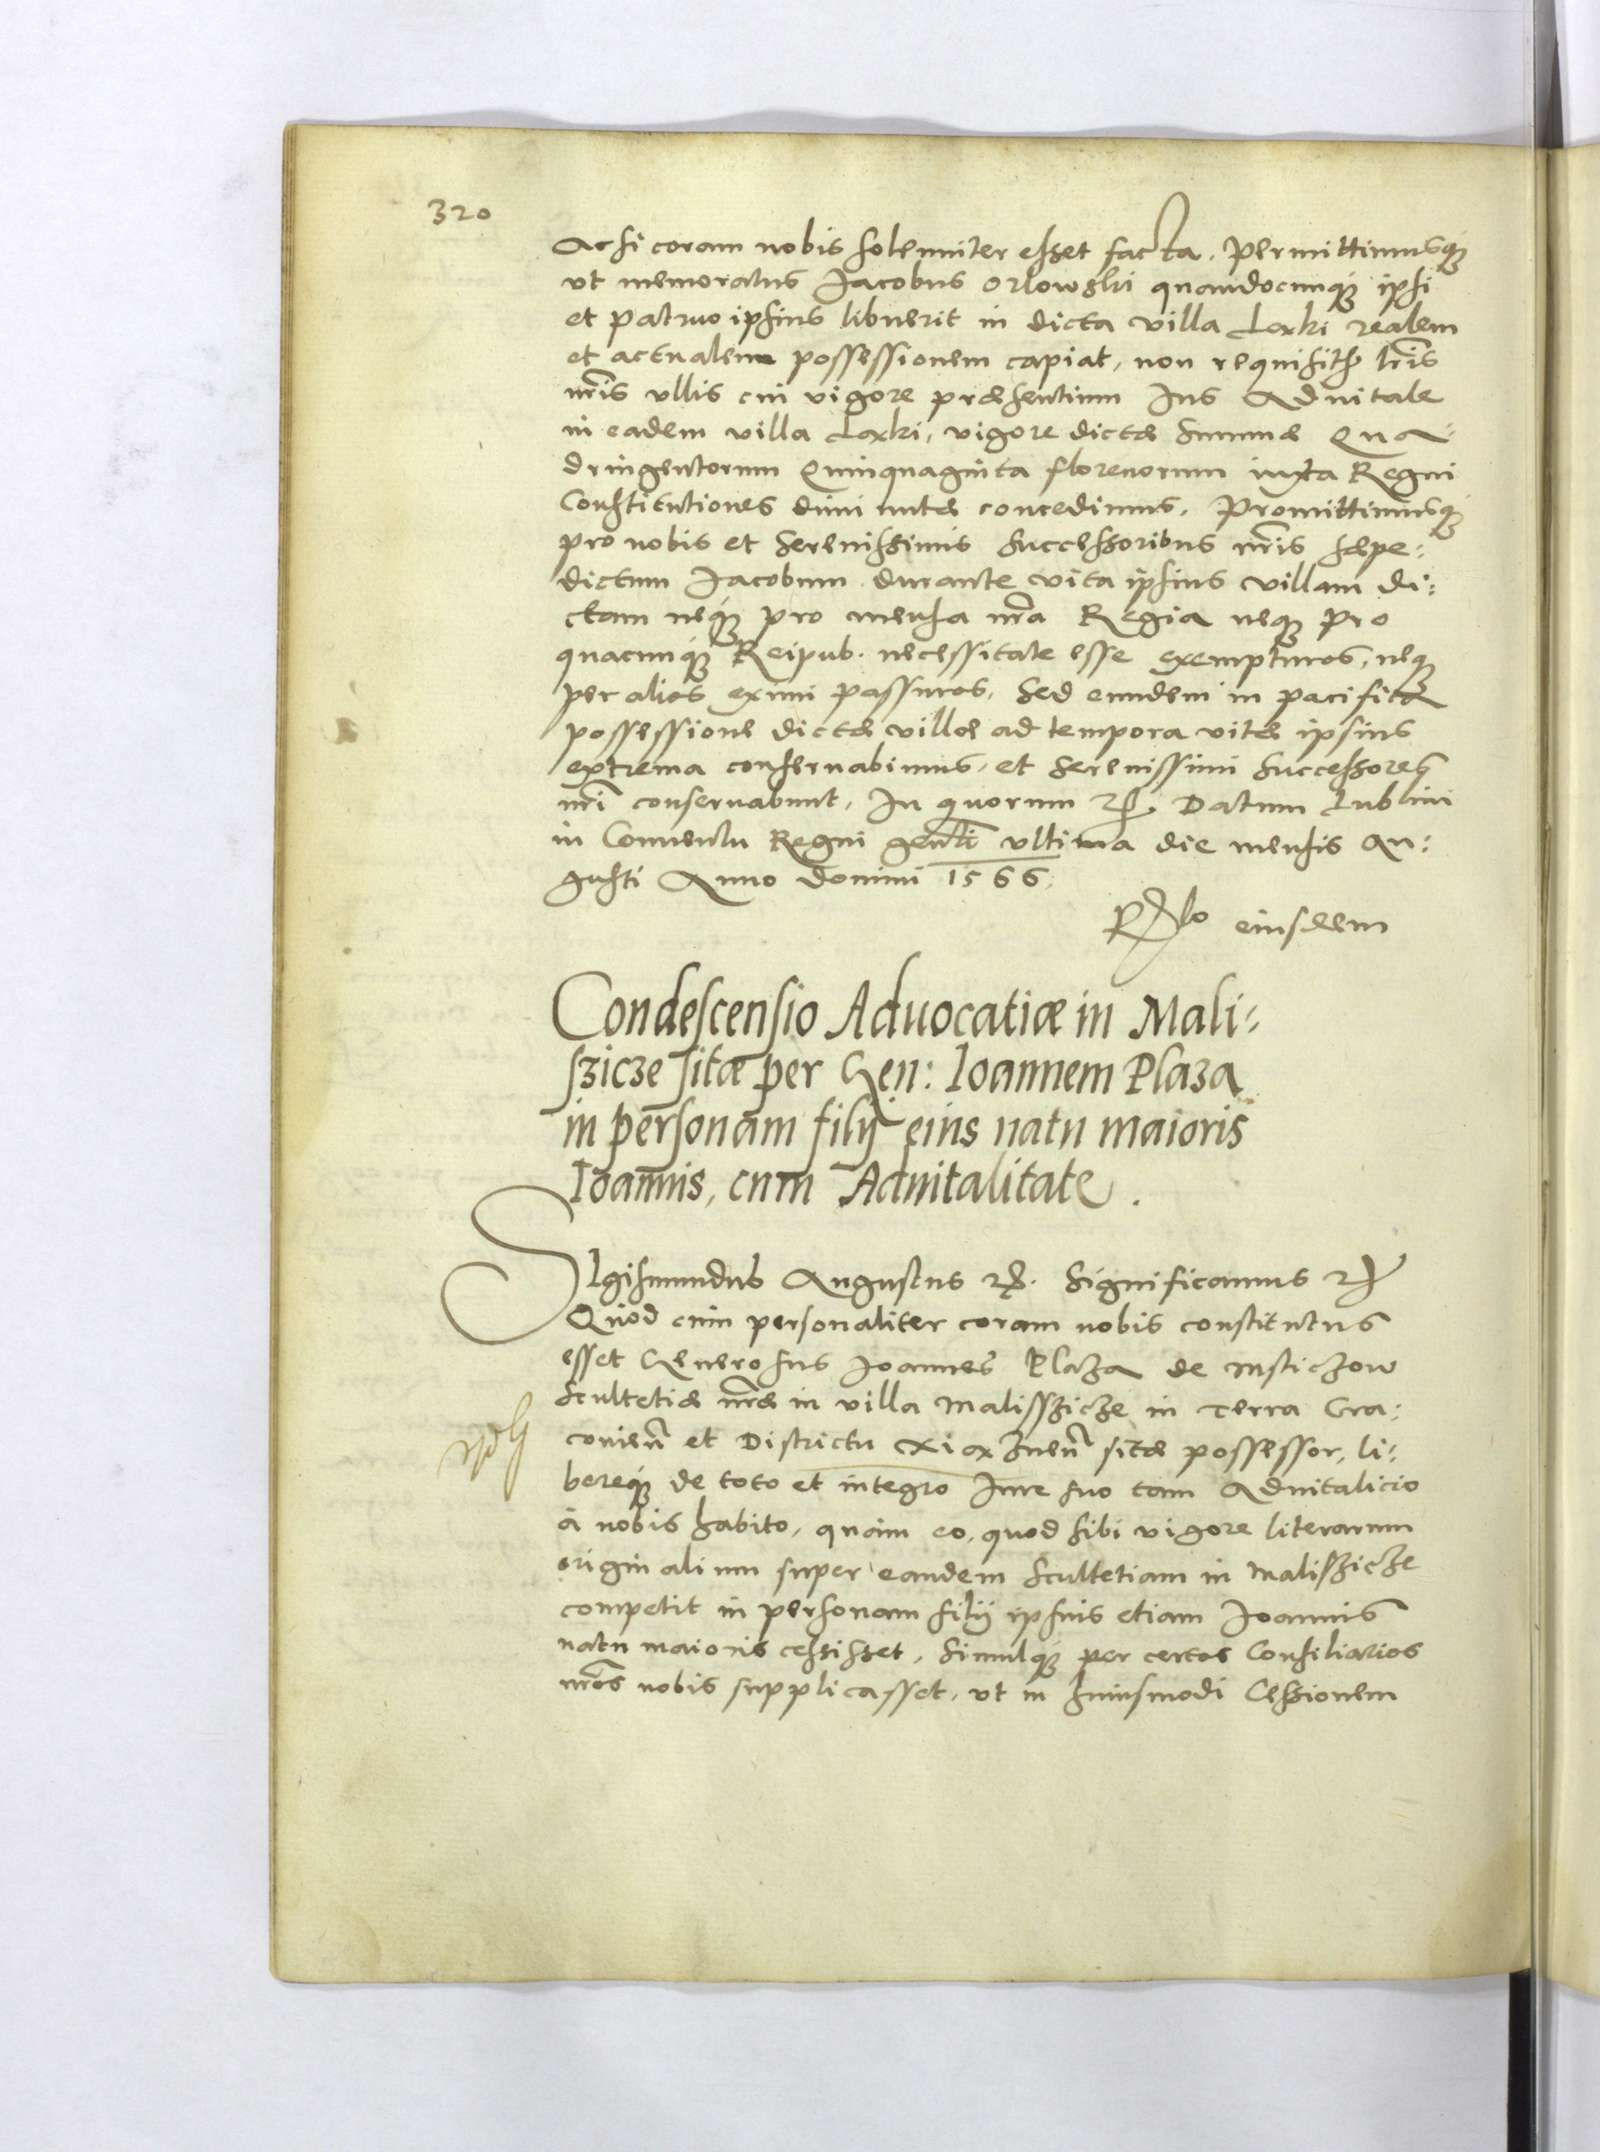 320
Ac si coram nobis solemniter esset facta. Permittimusq́ꝫ
vt memoratus Jacobus Orlowski quandocunq́ꝫ ipsi
et patruo ipsius libuerit in dicta villa Loxki realem
et actualem possessionem capiat, non requisitis lrīs
nrīs vllis cui vigore præsentium Jus Aduitale
in eadem villa Loxki, vigore dictæ summæ Qua:
dringentorum Quinquaginta florenorum iuxta Regni
Constitutiones diminutæ concedimus. Promittimusq́ꝫ
pro nobis et Serenissimis Successoribus nrīs sæpe:
dictum Jacobum durante vita ipsius villam di:
ctam neq́ꝫ pro mensa nrā Regia neqꝫ pro
quacunq́ꝫ Reipub. necessitate esse exempturos, neqꝫ
per alios eximi passuros, Sed eundem in pacifica
possessione dictæ villæ ad tempora vitæ ipsius
extrema conseruabimus, et Serenissimi Successores
nrī conseruabunt. In quorum etc. Datum Lublini
in Conuentu Regni genlī vltima die mensis Au:
gusti Anno Domini 1566.
Rlo eiusdem
Condescensio Aduocatiæ in Mali:
szicze sitæ per Gen: Ioannem Plaza
in personam filij eius natu maioris
Ioannis, cum Aduitalitate.
SIgismundus Augustus etc. Significamus etc
Quod cum personaliter coram nobis constitutus
esset Generosus Joannes Plaza de Msticzow
Scultetiæ nrāe in villa Malisszicze in Terra Cra:
couien̄ et Districtu Xiąznen̄ sitæ possessor, li:
bereq́ꝫ de toto et integro Iure suo tam Aduitalicio
à nobis habito, quàm eo, quod sibi vigore literarum
originalium super eandem Scultetiam in Maliszicze
competit in personam filij ipsius etiam Joannis
natu maioris cessisset, Simulq́ꝫ per certos Consiliarios
nrōs nobis supplicasset, vt in huiusmodi Cessionem